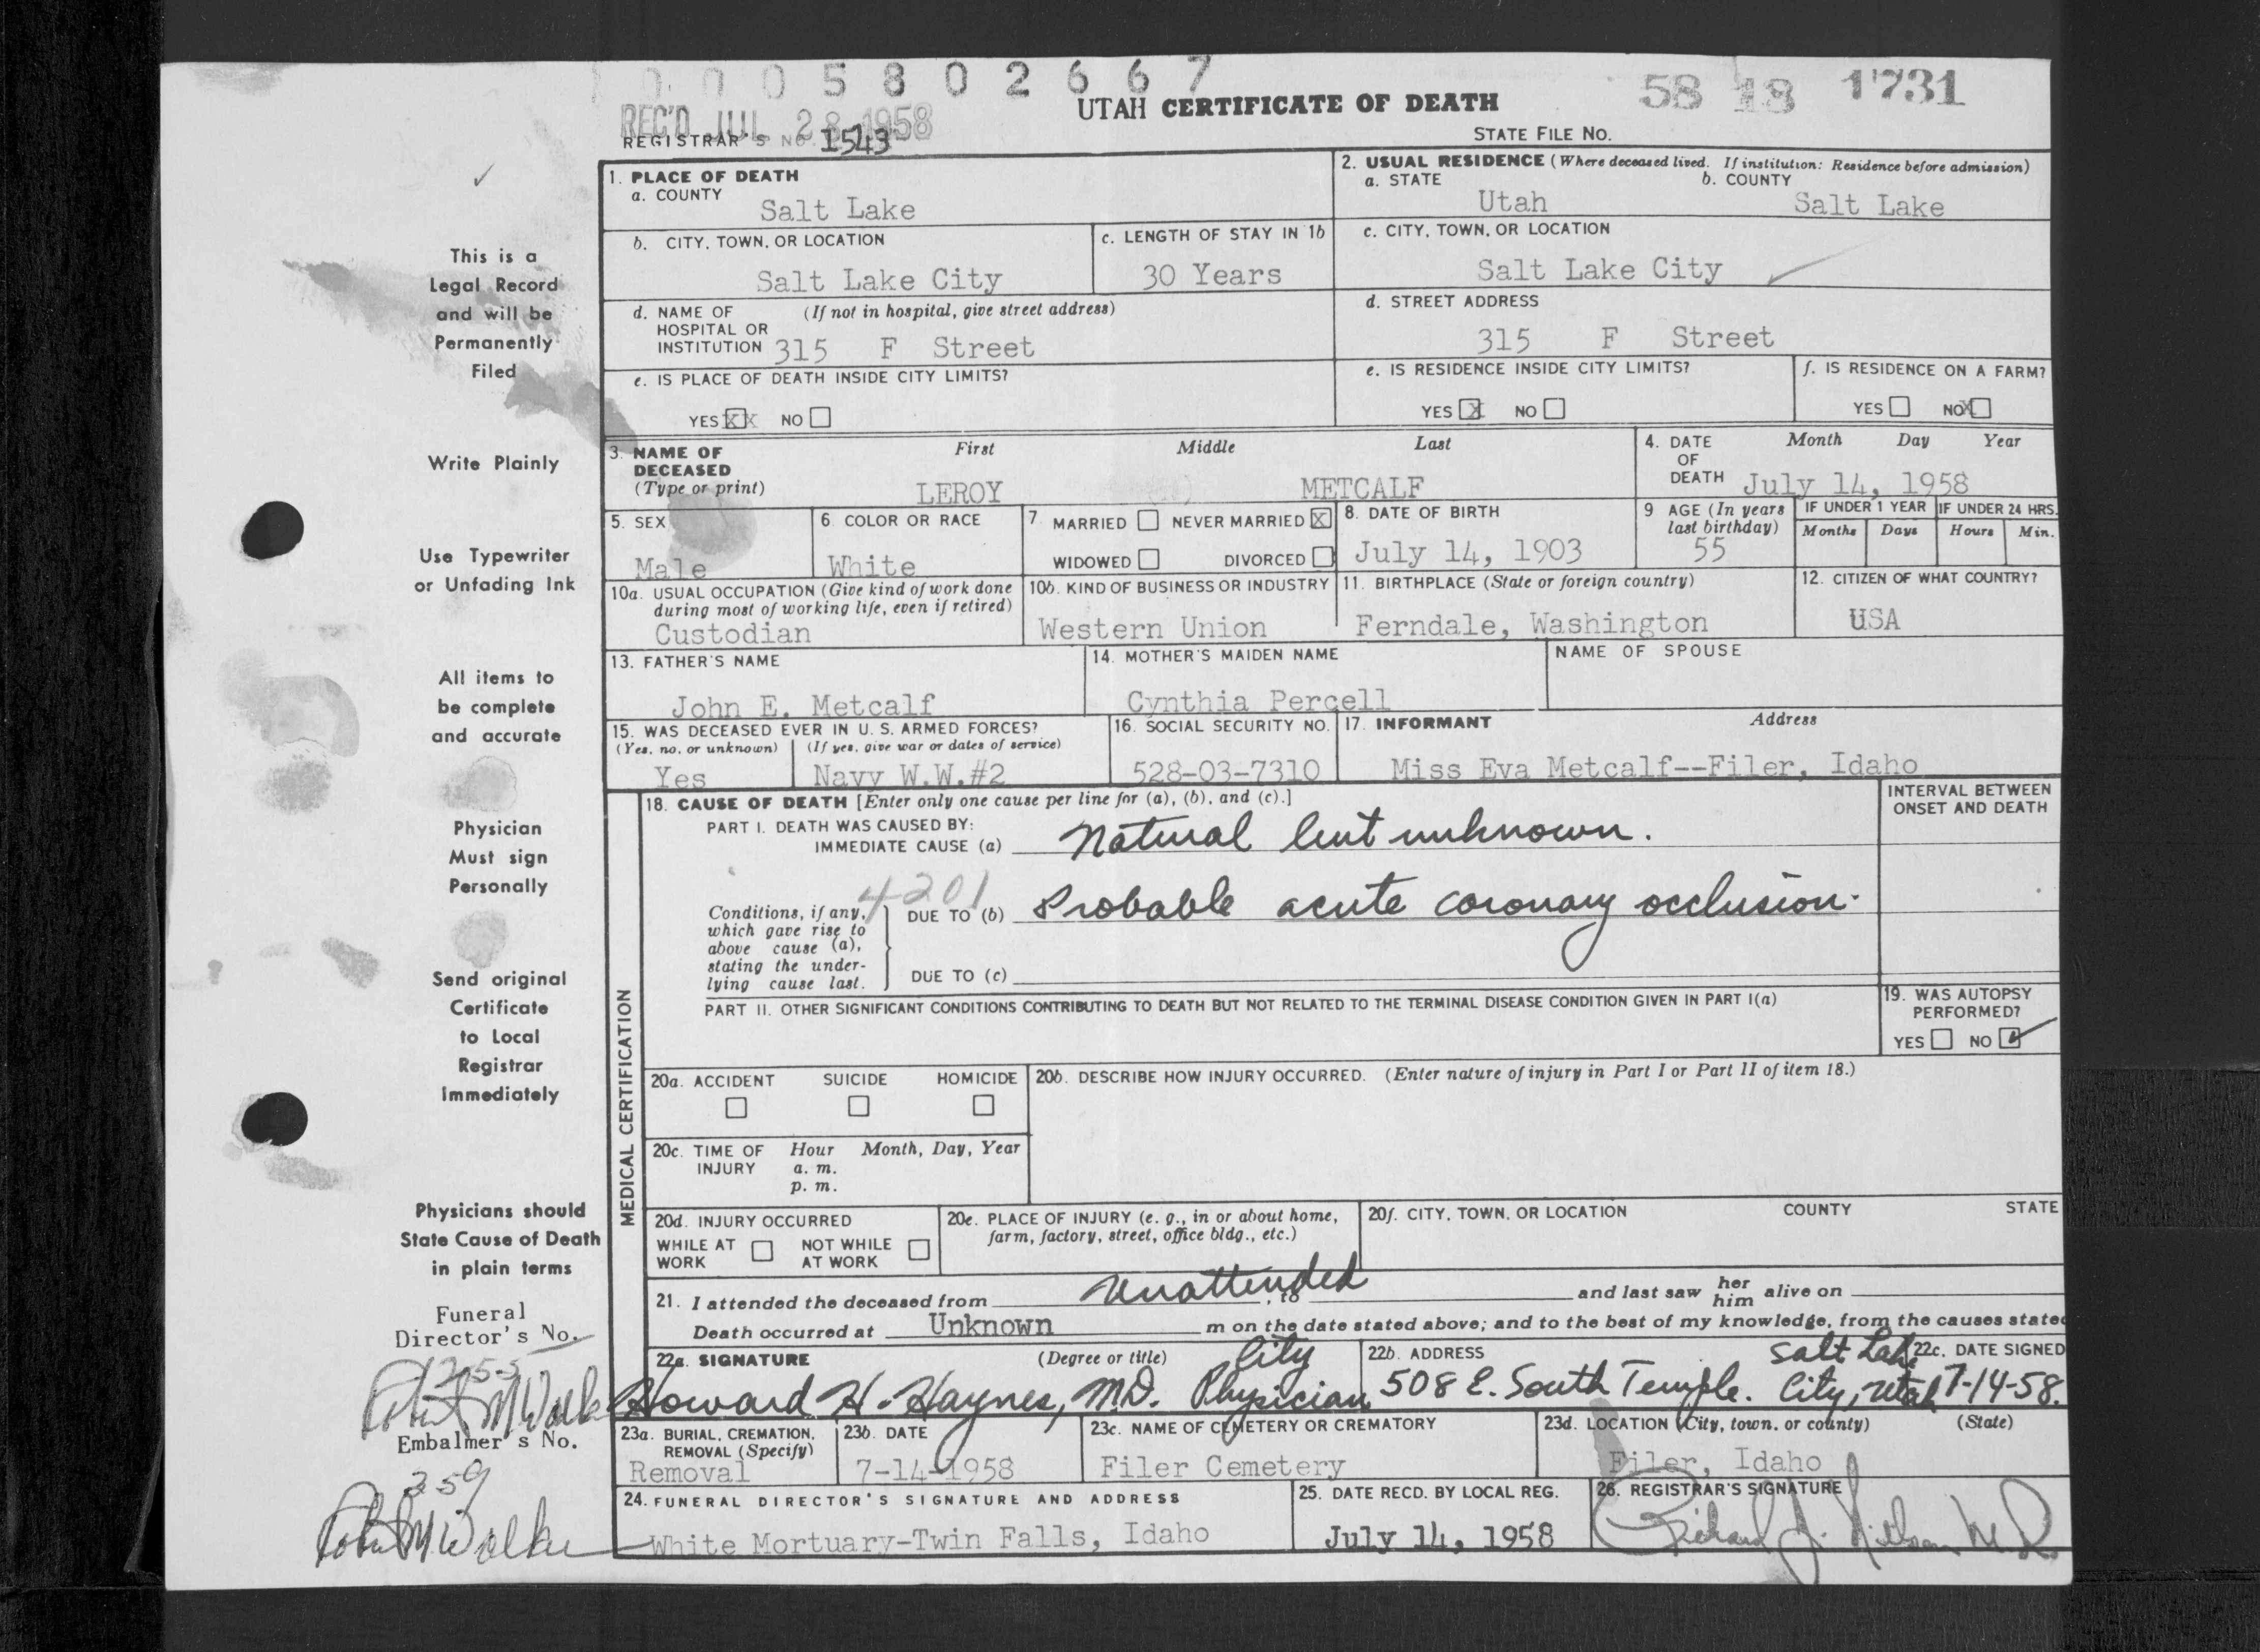 0 0 0 5 8 0 2 6 6 7
58 18 1731
REC'D JUL 28 1958
UTAH CERTIFICATE OF DEATH
REGISTRAR'S NO. 1543
STATE FILE NO.
1. PLACE OF DEATH
a. COUNTY
Salt Lake
2. USUAL RESIDENCE (Where deceased lived. If institution: Residence before admission)
a. STATE b. COUNTY
Utah Salt Lake
b. CITY, TOWN, OR LOCATION
Salt Lake City
c. LENGTH OF STAY IN 1b
30 Years
c. CITY, TOWN, OR LOCATION
Salt Lake City
d. NAME OF (If not in hospital, give street address)
HOSPITAL OR
INSTITUTION 315 F Street
d. STREET ADDRESS
315 F Street
e. IS PLACE OF DEATH INSIDE CITY LIMITS?
YES XX NO
e. IS RESIDENCE INSIDE CITY LIMITS?
YES X NO
f. IS RESIDENCE ON A FARM?
YES NO X
3. NAME OF DECEASED (Type or print)
First Middle Last
LEROY METCALF
4. DATE OF DEATH
Month Day Year
July 14, 1958
5. SEX
Male
6. COLOR OR RACE
White
7. MARRIED NEVER MARRIED X
WIDOWED DIVORCED
8. DATE OF BIRTH
July 14, 1903
9 AGE (In years last birthday)
55
IF UNDER 1 YEAR IF UNDER 24 HRS.
Months Days Hours Min.
10a. USUAL OCCUPATION (Give kind of work done
during most of working life, even if retired)
Custodian
10b. KIND OF BUSINESS OR INDUSTRY
Western Union
11. BIRTHPLACE (State or foreign country)
Ferndale, Washington
12. CITIZEN OF WHAT COUNTRY?
USA
13. FATHER'S NAME
John E. Metcalf
14. MOTHER'S MAIDEN NAME
Cynthia Percell
NAME OF SPOUSE
15. WAS DECEASED EVER IN U. S. ARMED FORCES?
(Yes, no, or unknown) (If yes, give war or dates of service)
Yes Navy W.W.#2
16. SOCIAL SECURITY NO.
528-03-7310
17. INFORMANT Address
Miss Eva Metcalf--Filer, Idaho
MEDICAL CERTIFICATION
18. CAUSE OF DEATH [Enter only one cause per line for (a), (b), and (c).]
INTERVAL BETWEEN
ONSET AND DEATH
PART I. DEATH WAS CAUSED BY:
IMMEDIATE CAUSE (a) Natural but unknown.
4201
Conditions, if any,
which gave rise to
above cause (a),
stating the under-
lying cause last.
DUE TO (b) Probable acute coronary occlusion.
DUE TO (c)
PART II. OTHER SIGNIFICANT CONDITIONS CONTRIBUTING TO DEATH BUT NOT RELATED TO THE TERMINAL DISEASE CONDITION GIVEN IN PART I(a)
19. WAS AUTOPSY
PERFORMED?
YES NO ✓
20a. ACCIDENT SUICIDE HOMICIDE
20b. DESCRIBE HOW INJURY OCCURRED. (Enter nature of injury in Part I or Part II of item 18.)
20c. TIME OF INJURY
Hour Month, Day, Year
a. m.
p. m.
20d. INJURY OCCURRED
WHILE AT WORK NOT WHILE AT WORK
20e. PLACE OF INJURY (e. g., in or about home,
farm, factory, street, office bldg., etc.)
20f. CITY, TOWN, OR LOCATION COUNTY STATE
21. I attended the deceased from Unattended, to and last saw her him alive on
Death occurred at Unknown m on the date stated above; and to the best of my knowledge, from the causes stated
22a. SIGNATURE (Degree or title)
Howard H. Haynes, M.D. City Physician
22b. ADDRESS
508 E. South Temple. Salt Lake City, Utah
22c. DATE SIGNED
7-14-58.
23a. BURIAL, CREMATION,
REMOVAL (Specify)
Removal
23b. DATE
7-14-1958
23c. NAME OF CEMETERY OR CREMATORY
Filer Cemetery
23d. LOCATION (City, town, or county) (State)
Filer, Idaho
24. FUNERAL DIRECTOR'S SIGNATURE AND ADDRESS
White Mortuary-Twin Falls, Idaho
25. DATE RECD. BY LOCAL REG.
July 14, 1958
26. REGISTRAR'S SIGNATURE
Richard J. Nilson M.D.
This is a
Legal Record
and will be
Permanently
Filed
Write Plainly
Use Typewriter
or Unfading Ink
All items to
be complete
and accurate
Physician
Must sign
Personally
Send original
Certificate
to Local
Registrar
Immediately
Physicians should
State Cause of Death
in plain terms
Funeral
Director's No.
1255
Embalmer's No.
359